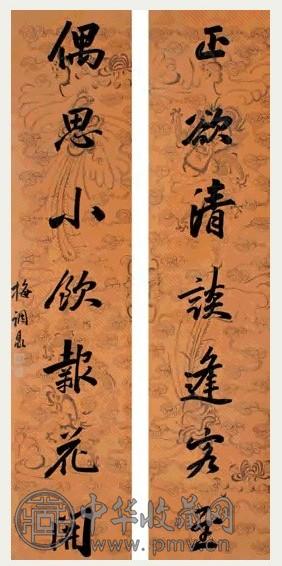 正欲清談逢客至
偶思小飲報花開
梅調鼎
中华收藏网
www.pmv.cn